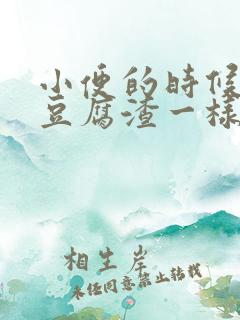 小便的时候
豆腐渣一样
相生岸
未经同意禁止转载